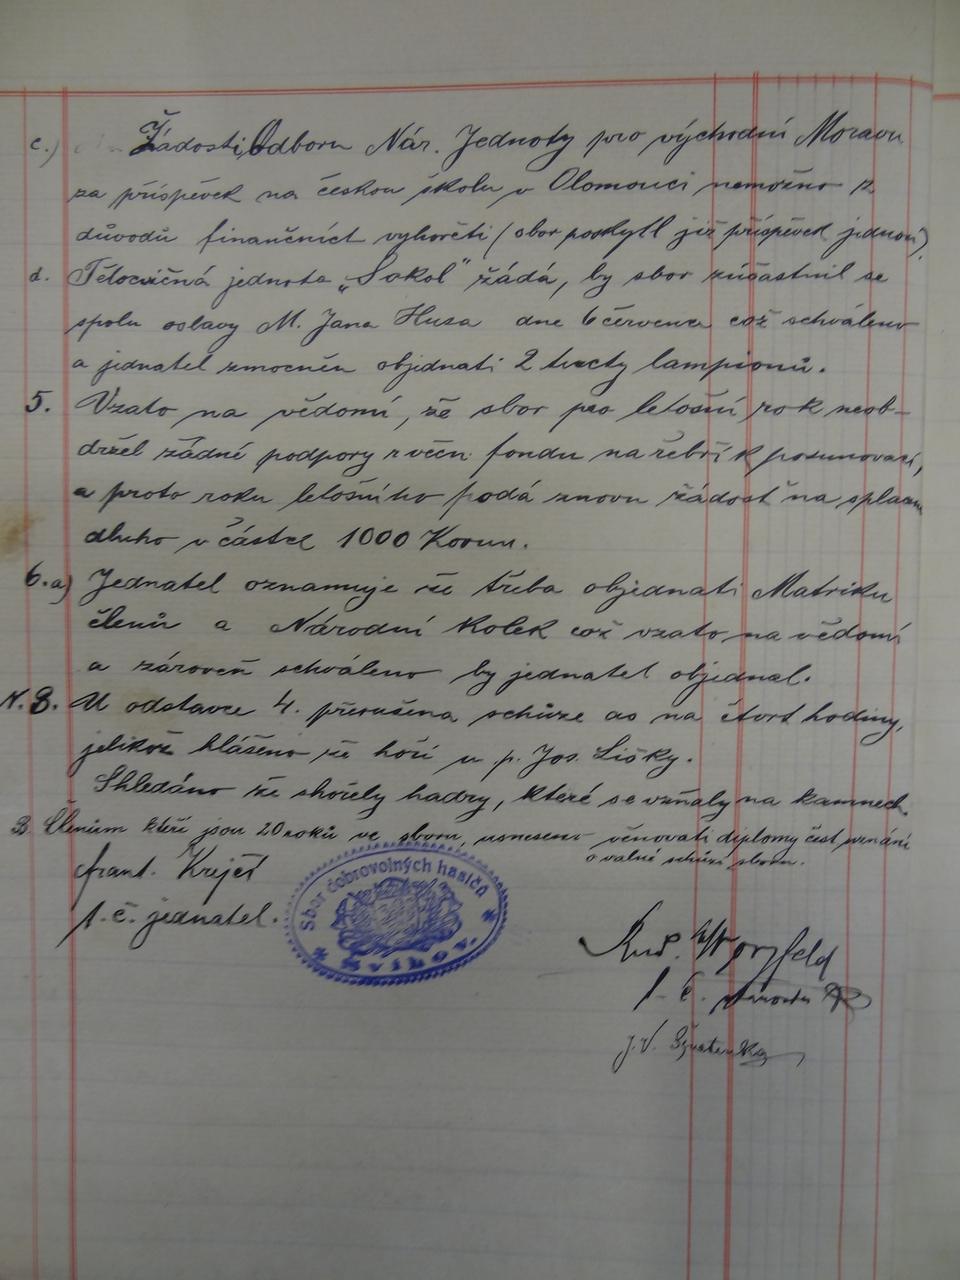 c.) Žádosti Odboru Nár. Jednoty pro východní Moravu
za příspěvek na českou školu v Olomouci nemožno z
důvodů finančních vyhověti (sbor poskytl již příspěvek jednou)
d. Tělocvičná jednota „Sokol" žádá, by sbor zúčastnil se
spolu oslavy M. Jana Husa dne 6 července což schváleno
a jednatel zmocněn objednati 2 tucty lampionů.
5. Vzato na vědomí, že sbor pro letošní rok neob-
držel žádné podpory z fondu na žebřík posunovací,
a proto roku letošního podá znovu žádost na splacení
dluhu v částce 1000 Korun.
6.a) Jednatel oznamuje že třeba objednati Matriku
členů a Národní kolek což vzato na vědomí
a zároveň schváleno by jednatel objednal.
N.B. U odstavce 4. přerušena schůze as na čtvrt hodiny,
jelikož hlášeno že hoří u p. Jos. Lišky.
Shledáno že shořely hadry, které se vzňaly na kamnech.
B. Členům kteří jsou 20 roků ve sboru, usneseno věnovati diplomy čest. uznání
o valné schůzi sboru.
frant. Krejčí
t.č. jednatel.
Sbor dobrovolných hasičů
Rud.
t. č. starosta
J. V.